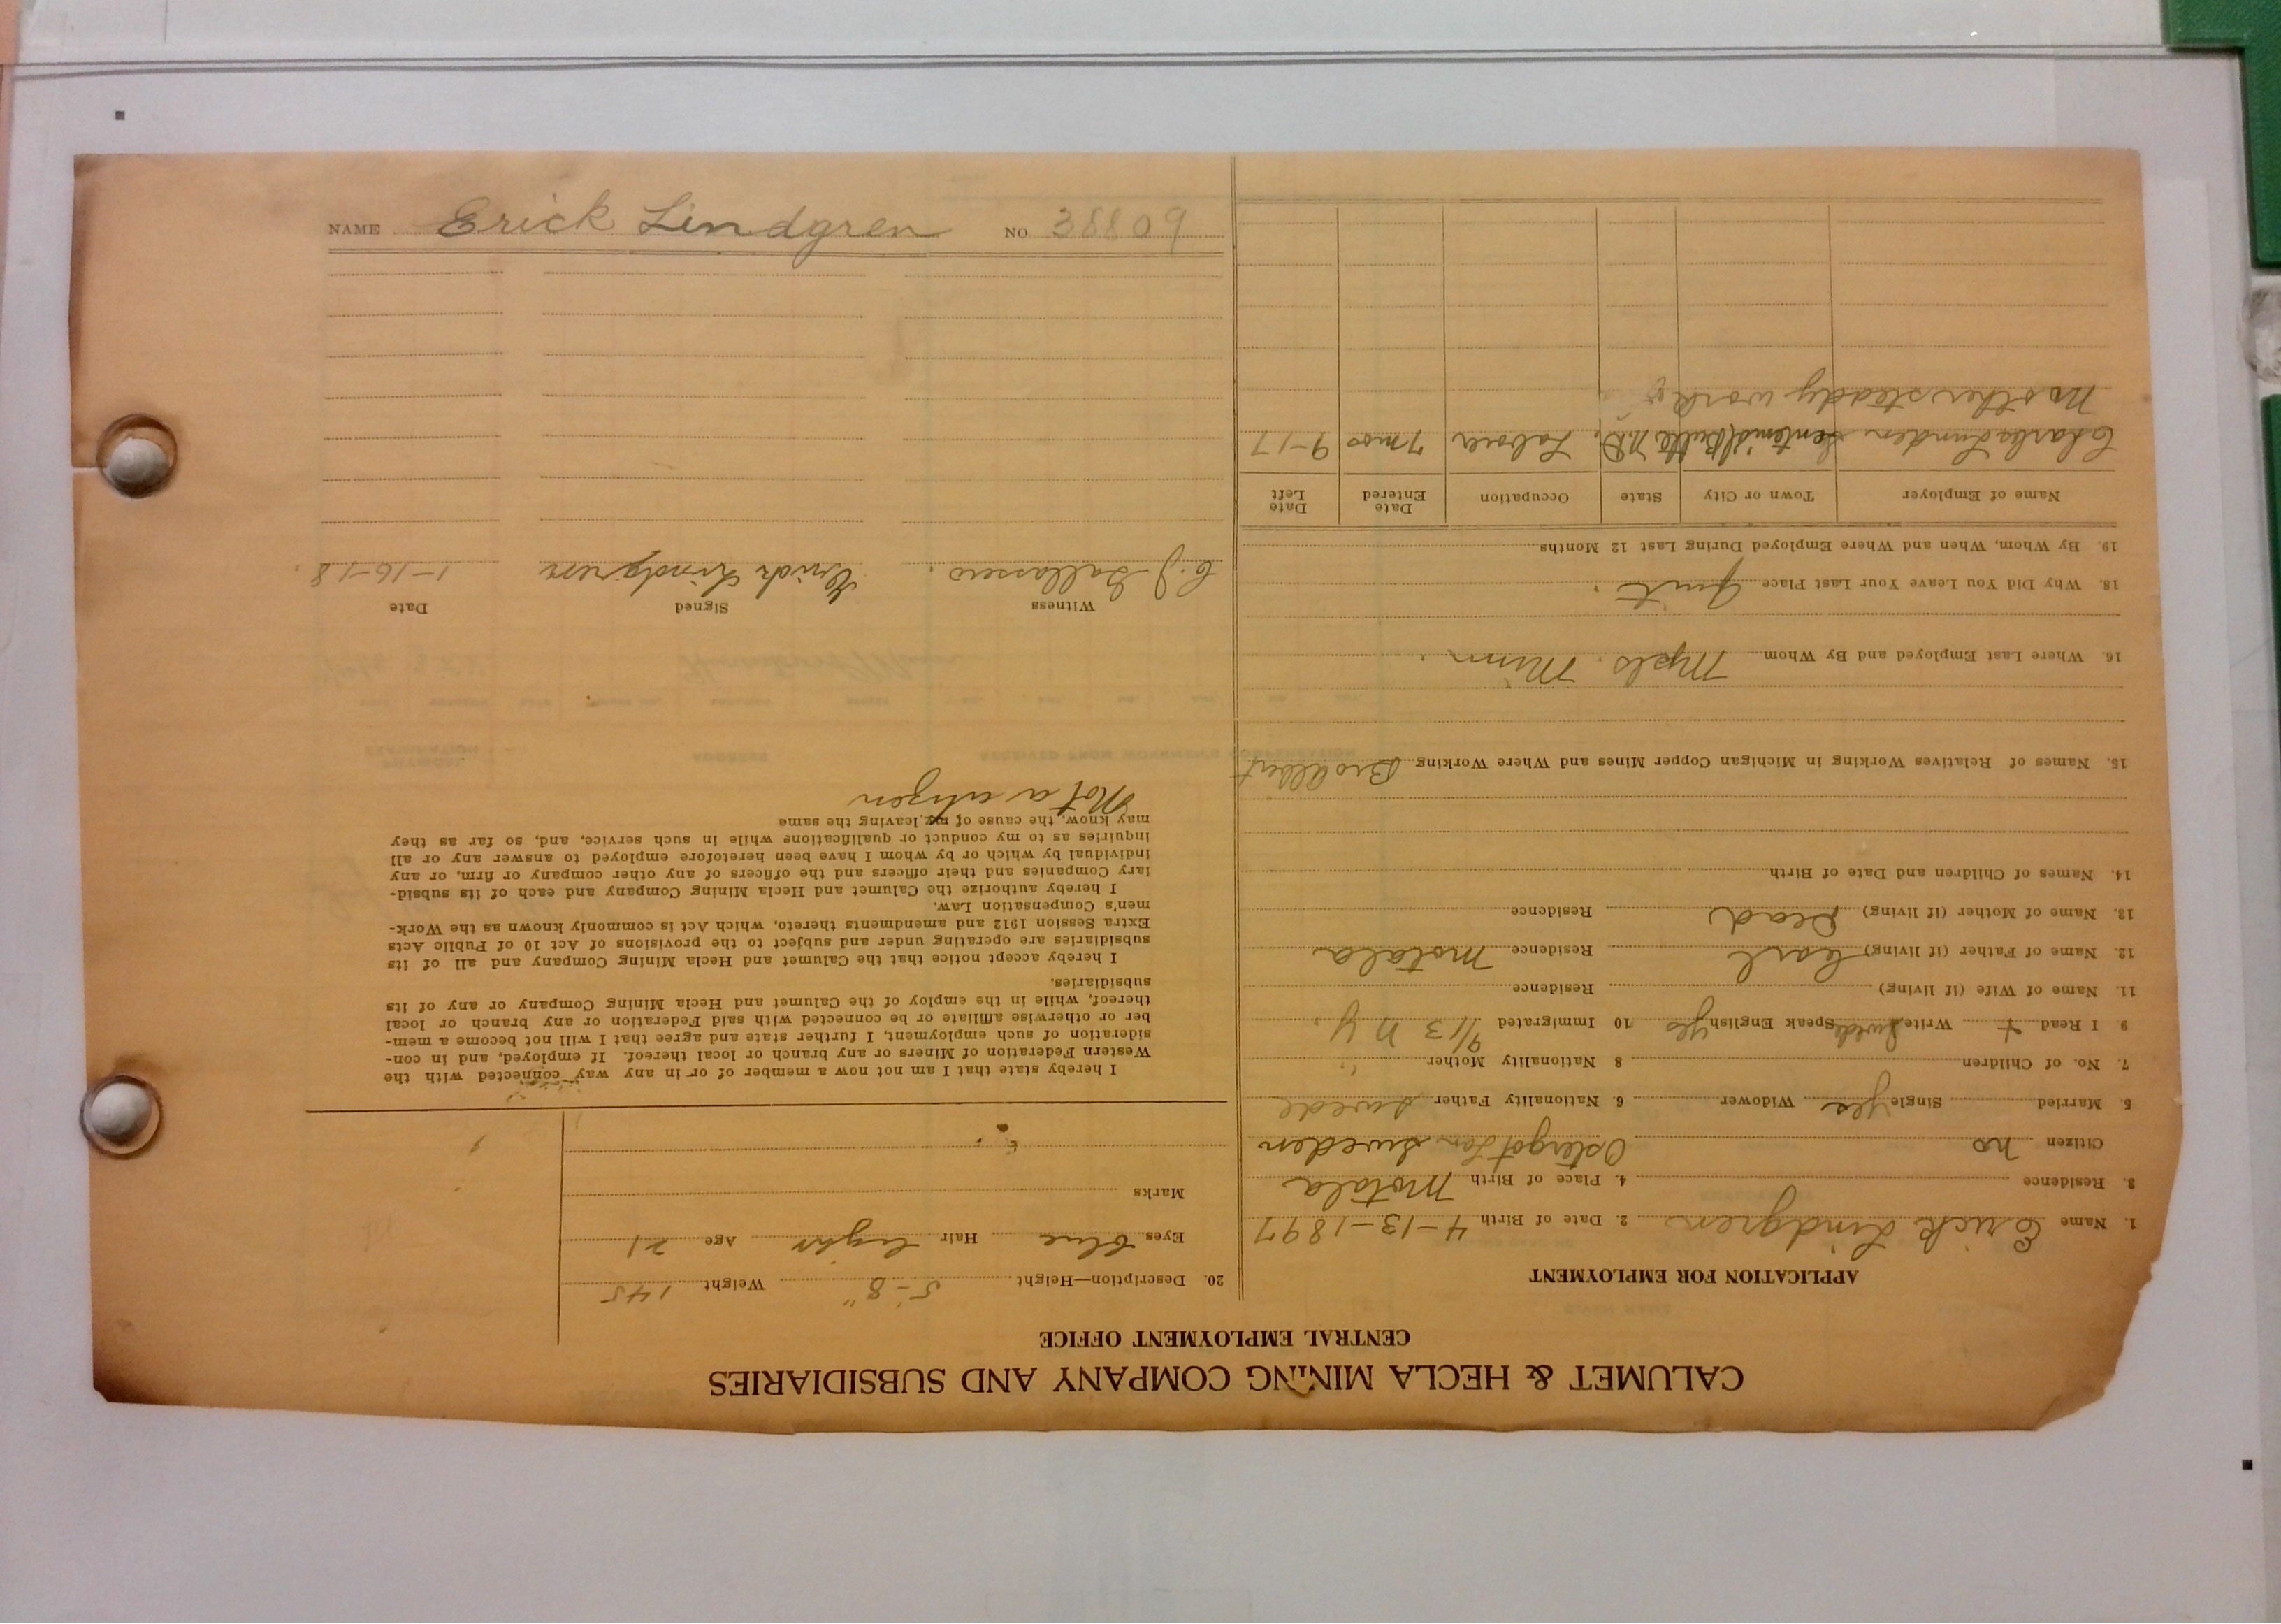 CALUMET & HECLA MINING COMPANY AND SUBSIDIARIES
CENTRAL EMPLOYMENT OFFICE
APPLICATION FOR EMPLOYMENT
1. Name Erick Lindgren 2. Date of Birth 4-13-1897
3. Residence 4. Place of Birth Motala
Citizen no Ostergot Lan Sweden
5. Married Single yes Widower 6. Nationality Father Swede
7. No. of Children 8 Nationality Mother "
9 I Read + Write Swede Speak English yes 10 Immigrated 9/13 N Y.
11. Name of Wife (if living) Residence
12. Name of Father (if living) Carl Residence Motala
13. Name of Mother (if living) Dead Residence
14. Names of Children and Date of Birth
15. Names of Relatives Working in Michigan Copper Mines and Where Working
16. Where Last Employed and By Whom Mpls. Minn.
18. Why Did You Leave Your Last Place Quit.
19. By Whom, When and Where Employed During Last 12 Months
Name of Employer Town or City State Occupation Date Entered Date Left
Charles Lunden Sentinel Butte N.D. Labour 7 mos 9-17
No other steady work
20. Description—Height 5-8" Weight 145
Eyes blue Hair light Age 21
Marks
I hereby state that I am not now a member of or in any way connected with the
Western Federation of Miners or any branch or local thereof. If employed, and in con-
sideration of such employment, I further state and agree that I will not become a mem-
ber or otherwise affiliate or be connected with said Federation or any branch or local
thereof, while in the employ of the Calumet and Hecla Mining Company or any of its
subsidiaries.
I hereby accept notice that the Calumet and Hecla Mining Company and all of its
subsidiaries are operating under and subject to the provisions of Act 10 of Public Acts
Extra Session 1912 and amendments thereto, which Act is commonly known as the Work-
men's Compensation Law.
I hereby authorize the Calumet and Hecla Mining Company and each of its subsid-
iary Companies and their officers and the officers of any other company or firm, or any
individual by which or by whom I have been heretofore employed to answer any or all
inquiries as to my conduct or qualifications while in such service, and, so far as they
may know, the cause of my leaving the same
Not a citizen
Witness Signed Date
C. J. Erick Lindgren 1-16-18.
NAME Erick Lindgren NO 38809